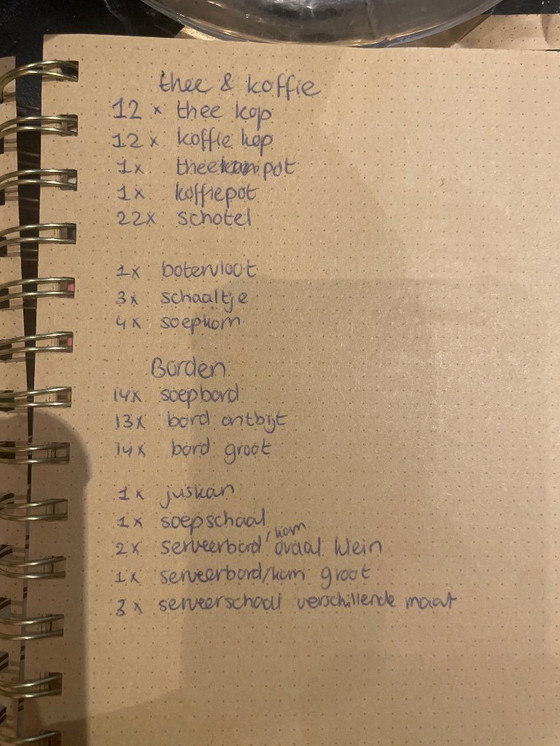 thee & koffie
12 x thee kop
12 x koffie kop
1x theepot
1x koffiepot
22x schotel
1x botervloot
3x schaaltje
4x soepkom
Borden
14x soepbord
13x bord ontbijt
14x bord groot
1x juskan
1x soepschaal
2x serveerbord/kom ovaal klein
1x serveerbord/kom groot
3x serveerschaal verschillende maat